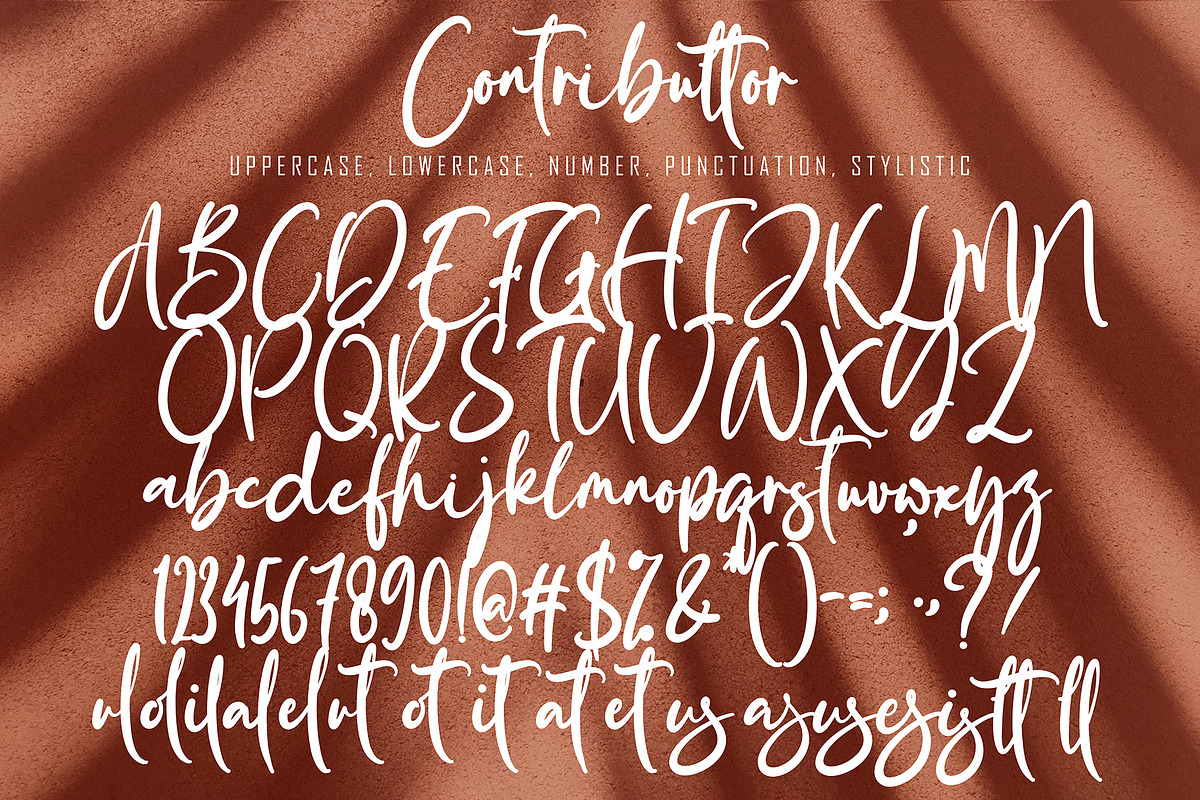 Contributtor
UPPERCASE, LOWERCASE, NUMBER, PUNCTUATION, STYLISTIC
ABCDEFGHIJKLMN
OPQRSTUVWXYZ
abcdefhijklmnopqrstuvwxyz
1234567890!@#$%&*()-=;.,?/
ululilalelut ot it at et us asusesistt ll